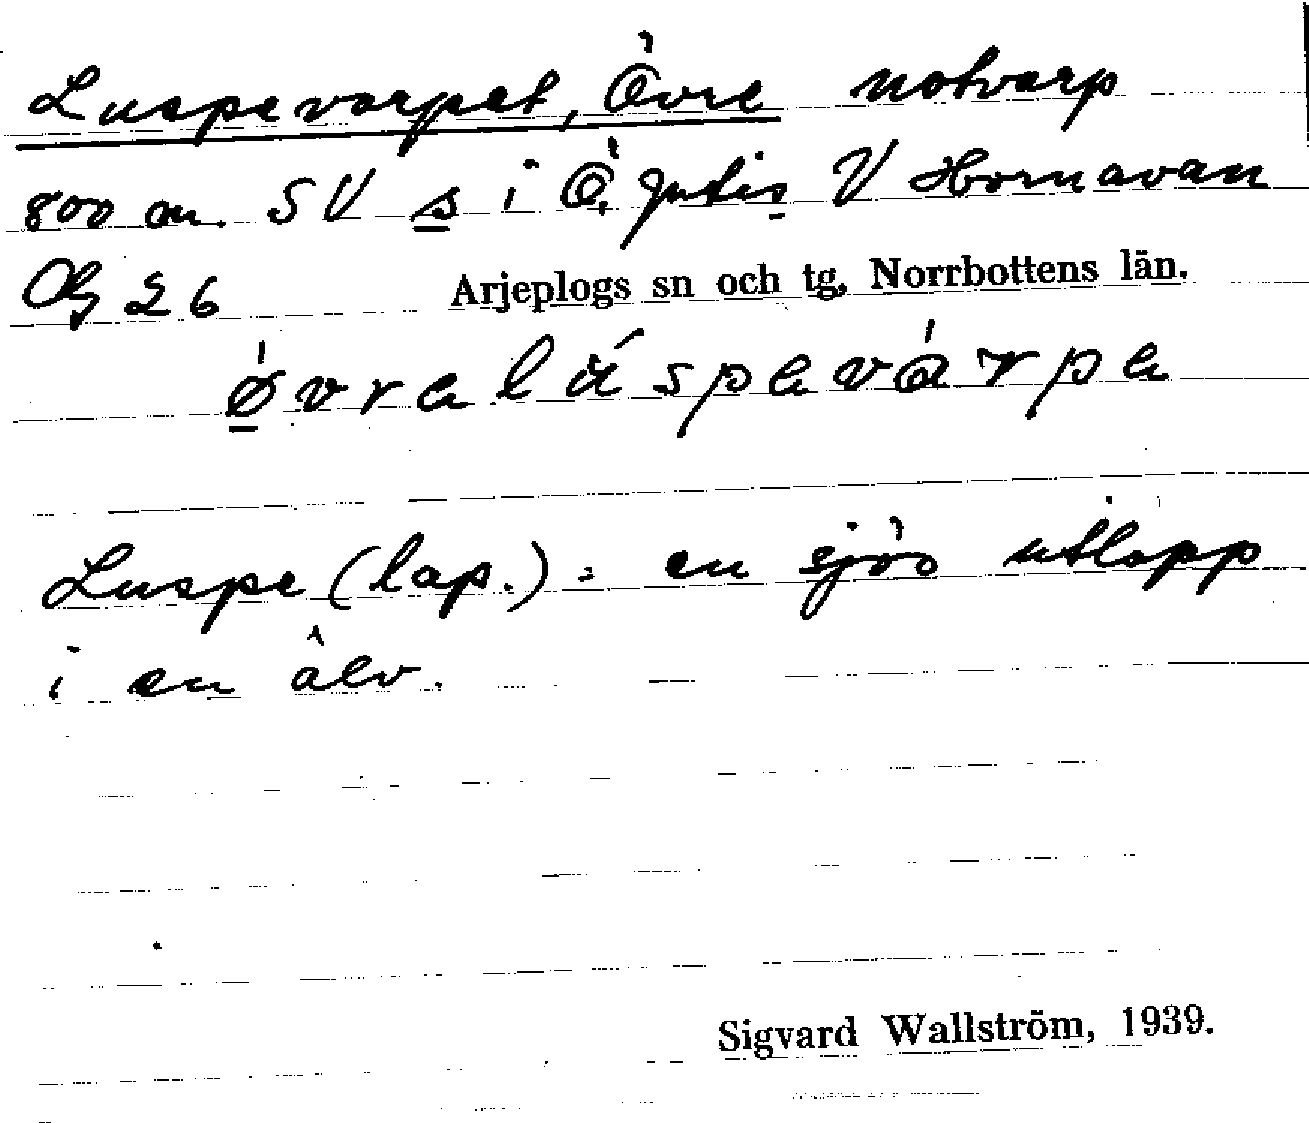 Luspevarpet, Övre notvarp
800 m. SV s i Ö. Jutis V Hornavan
26 Arjeplogs sn och tg, Norrbottens län.
øvre lúspevárpe
Luspe (lap.) = en sjös utlopp
i en älv.
Sigvard Wallström, 1939.